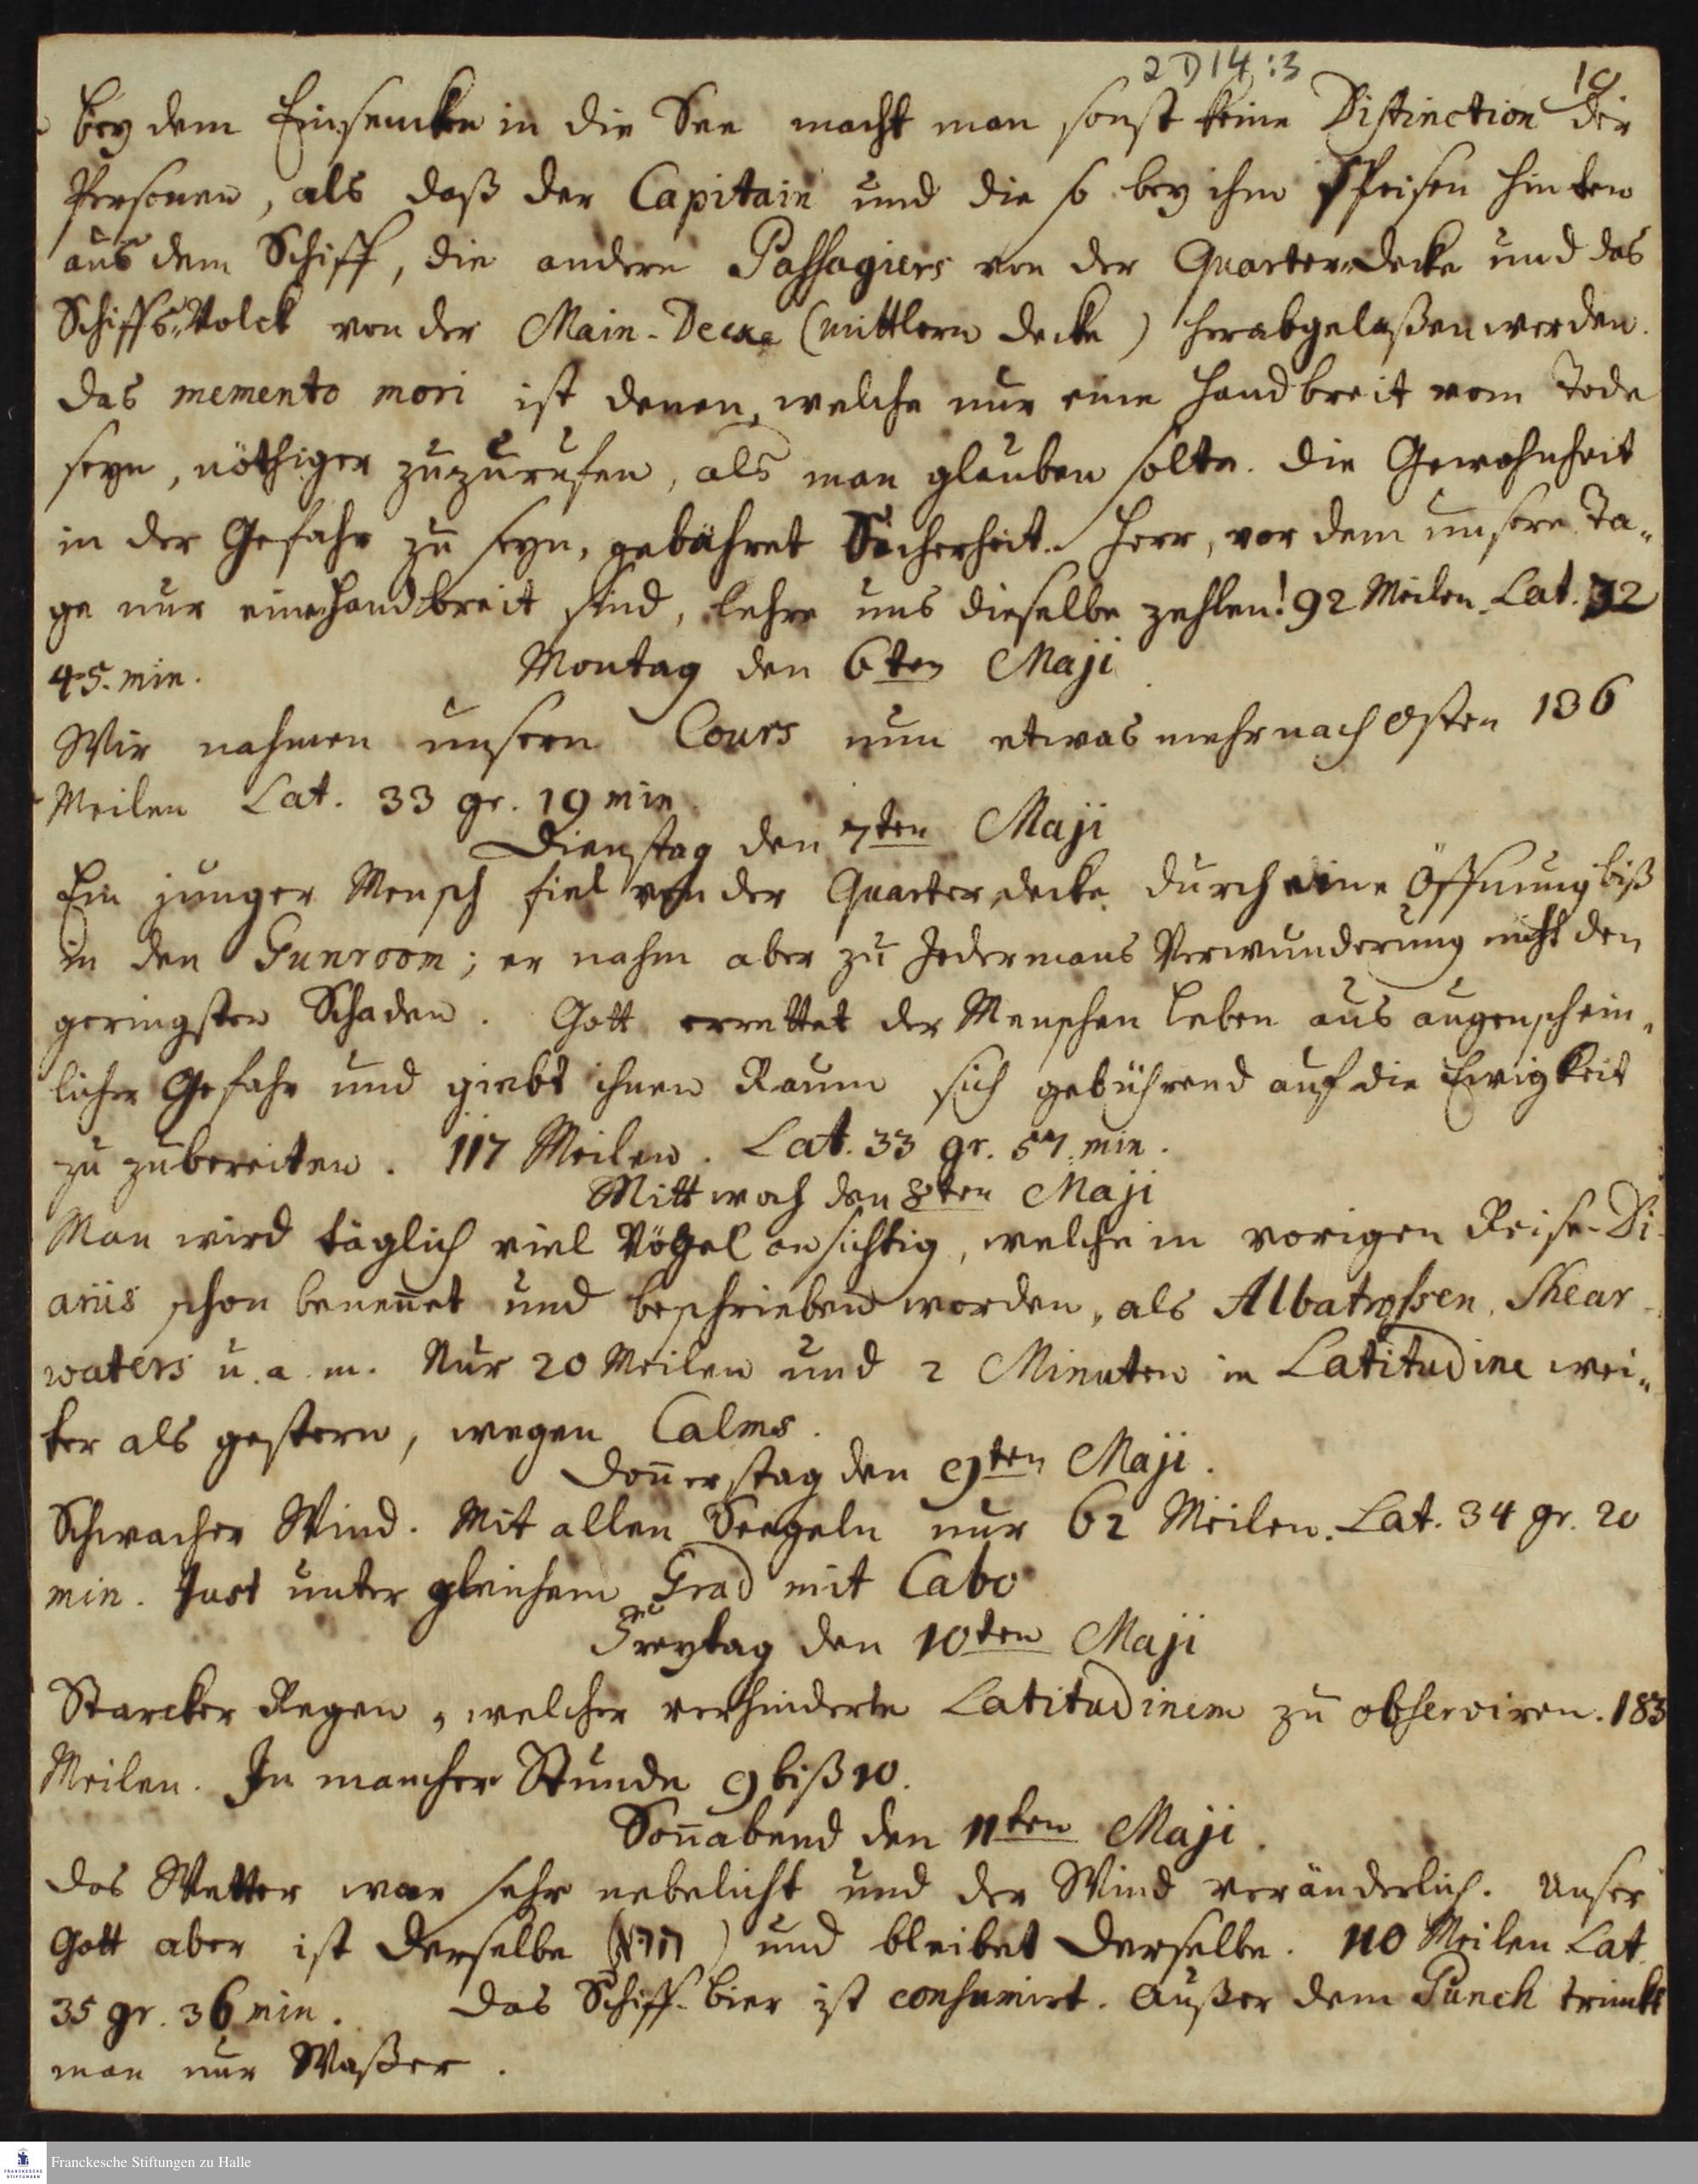 2 D 14 : 3
10
bey dem Einsencken in die See macht man sonst keine Distinction der
Personen, als daß der Capitain und die so bey ihm speisen hinten
aus dem Schiff, die andern Passagiers von der Quarter-decke und das
Schiffs-Volck von der Main-Decke (mittlern decke) herabgelaßen werden.
das memento mori ist denen, welche nur eine Handbreit vom Tode
seyn, nöthiger zuzurufen, als man glauben solte. die Gewohnheit
in der Gefahr zu seyn, gebähret Sicherheit. Herr, vor dem unsere Ta-
ge nur eine Handbreit sind, lehre uns dieselbe zehlen! 92 Meilen. Lat. 32
45. min.
Montag den 6ten Maji
Wir nahmen unsern Cours nun etwas mehr nach Osten 136
Meilen Lat. 33 gr. 19 min.
Dienstag den 7ten Maji
Ein junger Mensch fiel von der Quarter-decke durch eine Öffnung biß
in den Gunroom; er nahm aber zu Jedermans Verwunderung nicht den
geringsten Schaden. Gott errettet der Menschen Leben aus augenschein-
licher Gefahr und giebt ihnen Raum sich gebührend auf die Ewigkeit
zu zubereiten. 117 Meilen. Lat. 33 gr. 57. min.
Mittwoch den 8ten Maji
Man wird täglich viel Vögel ansichtig, welche in vorigen Reise-Di-
ariis schon beneñet und beschrieben worden, als Albatrossen, Shear-
waters u. a. m. Nur 20 Meilen und 2 Minuten in Latitudine wei-
ter als gestern, wegen Calms.
Doñerstag den 9ten Maji.
Schwacher Wind. Mit allen Seegeln nur 62 Meilen. Lat. 34 gr. 20
min. Just unter gleichem Grad mit Cabo
Freytag den 10ten Maji
Starcker Regen, welcher verhinderte Latitudinem zu observiren. 183
Meilen. In mancher Stunde 9 biß 10.
Soñabend den 11ten Maji.
das Wetter war sehr nebelicht und der Wind veränderlich. Unser
Gott aber ist derselbe (הוא) und bleibet derselbe. 110 Meilen Lat.
35 gr. 36 min. das Schiff-bier ist consumirt. Außer dem Punch trinkt
man nur Waßer.
Franckesche Stiftungen zu Halle
FRANCKESCHE
STIFTUNGEN